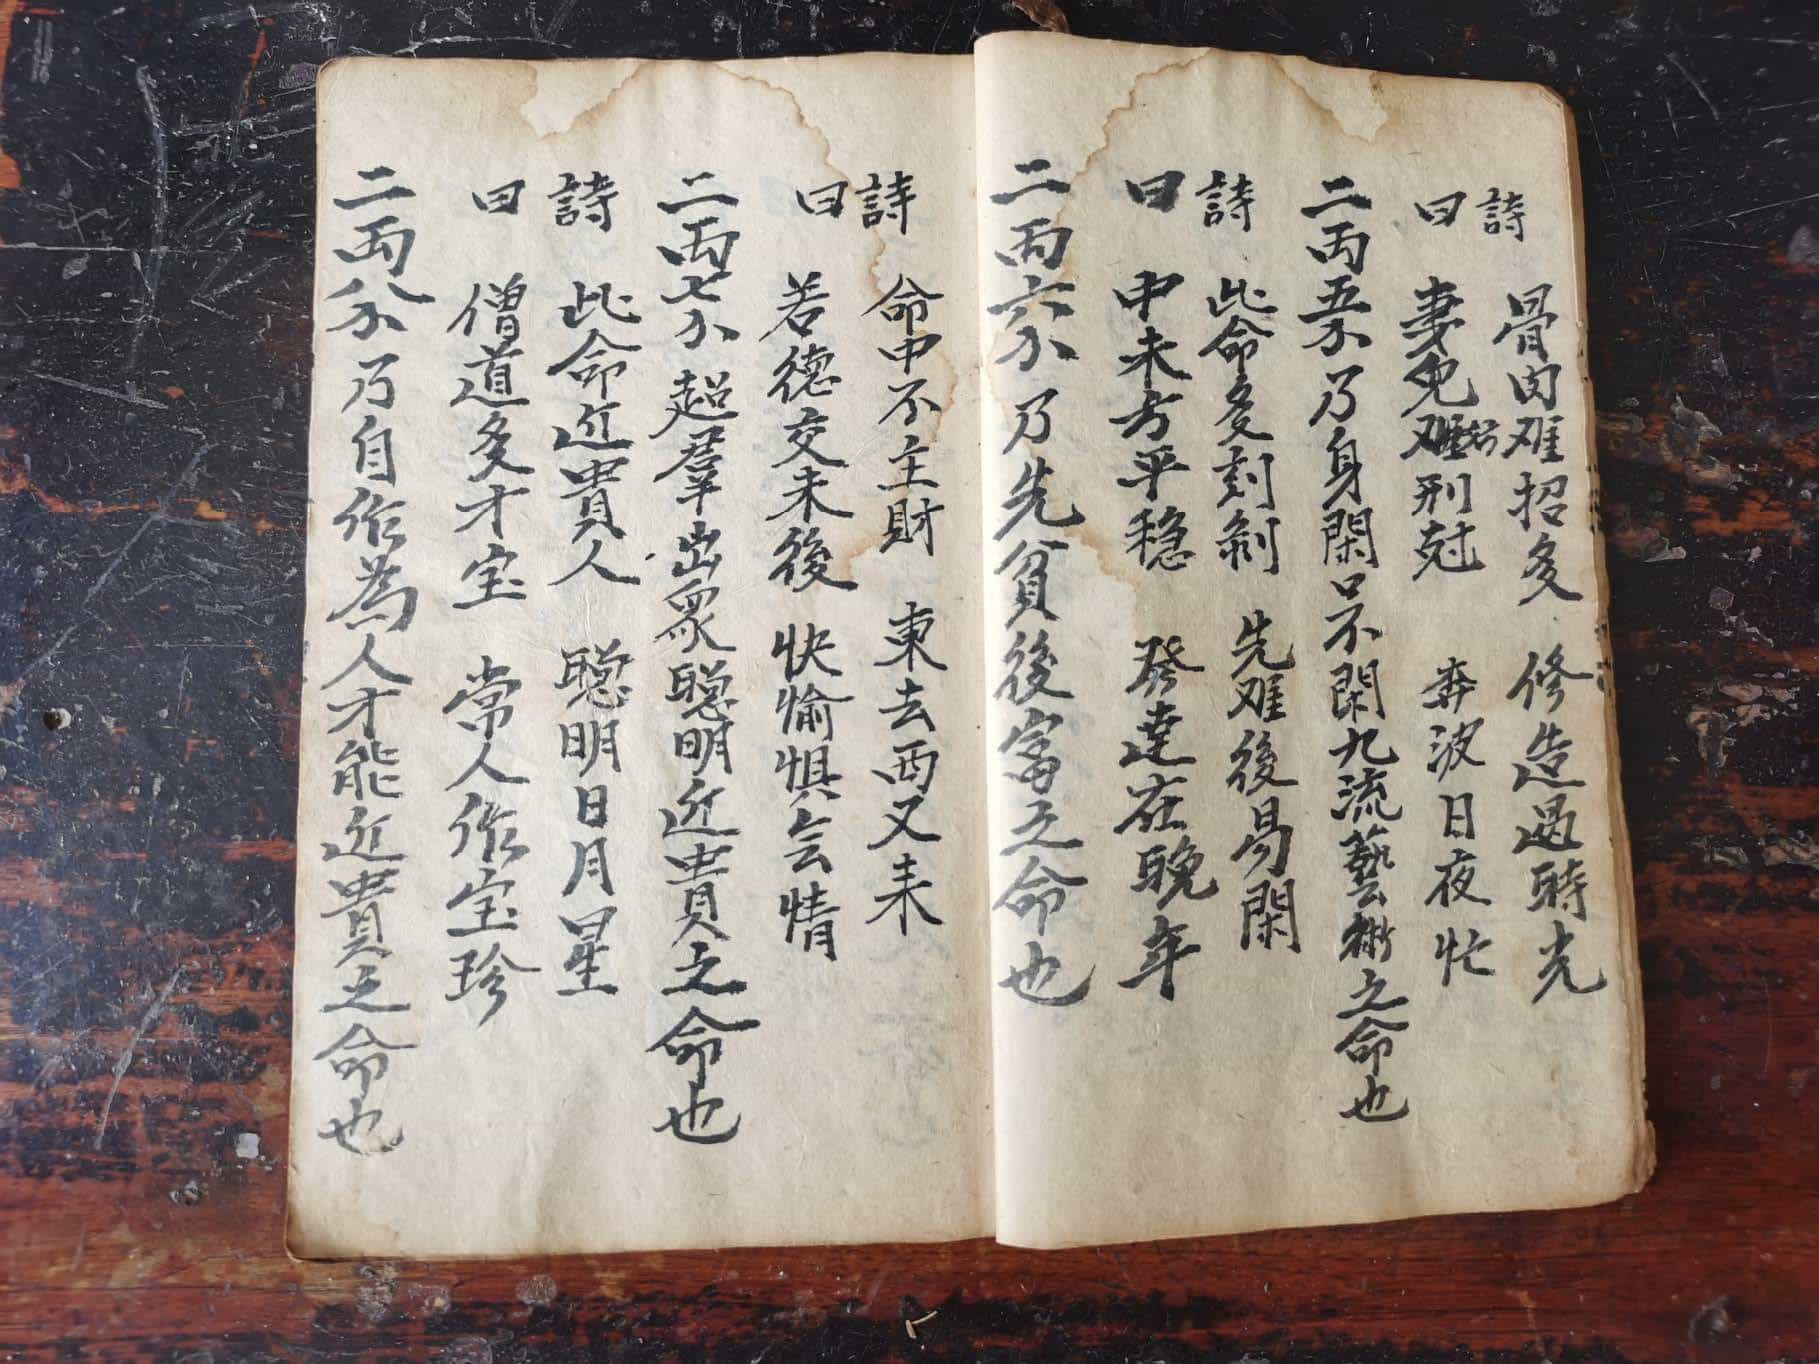 詩 骨肉难招多 修造過時光
曰 妻免难招刑尅 奔波日夜忙
二両五分乃身閑口不閑九流藝術之命也
詩 此命多刻剥 先难後易閑
曰 中未方平穏 發達在晚年
二両六分乃先貧後富之命也
詩 命中不主財 東去西又耒
曰 若德交未後 快愉惧会情
二両七分超羣出衆聰明近貴之命也
詩 此命近貴人 聰明日月星
曰 僧道多才宝 常人作宝珍
二両八分乃自作為人才能近貴之命也